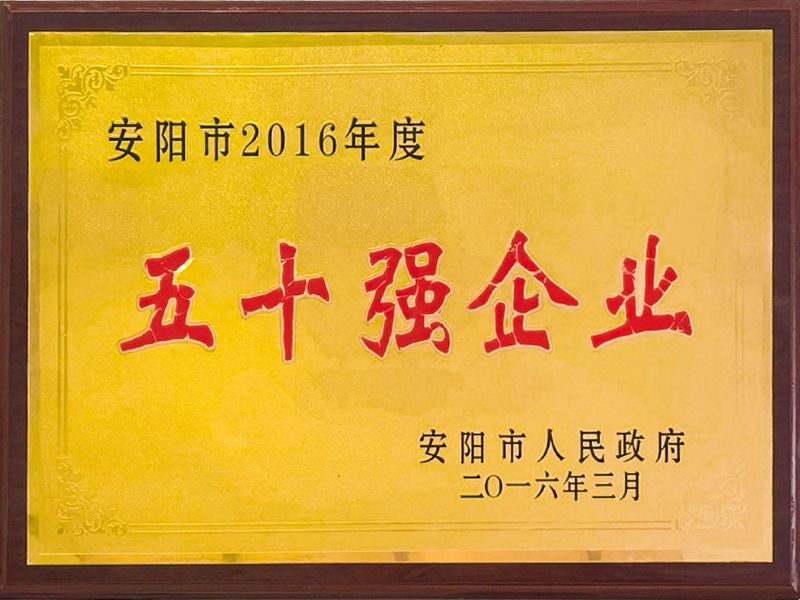 安阳市2016年度
五十强企业
安阳市人民政府
二〇一六年三月